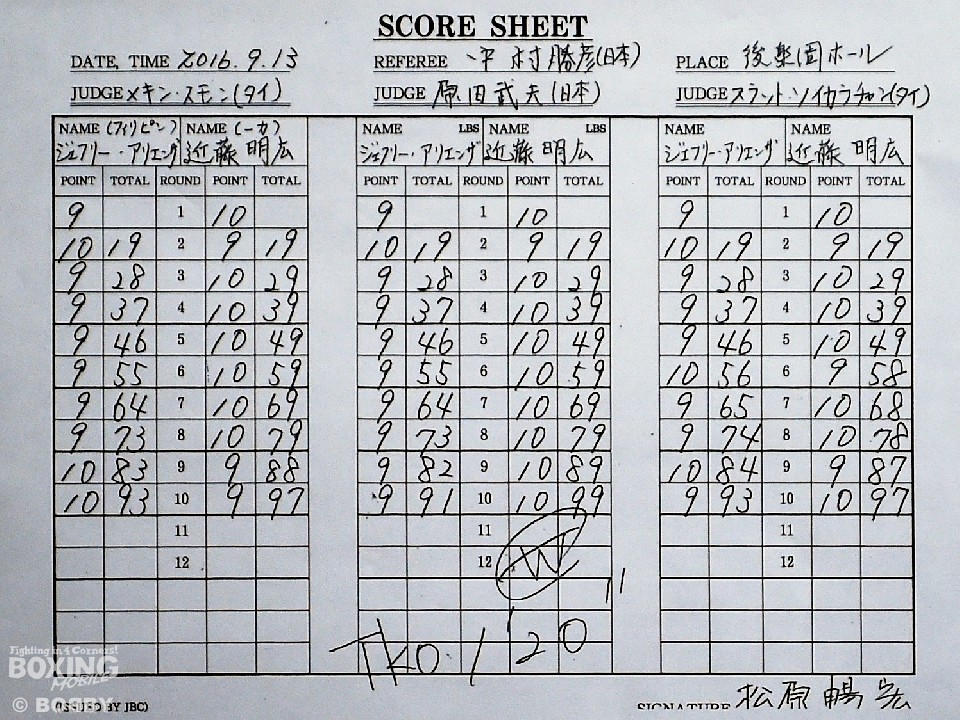 SCORE SHEET
DATE, TIME 2016.9.13 REFEREE 中村勝彦(日本) PLACE 後楽園ホール
JUDGE メキン・スモン(タイ) JUDGE 原田武夫(日本) JUDGE スラット・ソイカラチャン(タイ)
NAME (フィリピン) NAME (一力) NAME LBS NAME LBS NAME NAME
ジェフリー・アリエンザ 近藤明広 ジェフリー・アリエンザ 近藤明広 ジェフリー・アリエンザ 近藤明広
POINT TOTAL ROUND POINT TOTAL POINT TOTAL ROUND POINT TOTAL POINT TOTAL ROUND POINT TOTAL
9 1 10 9 1 10 9 1 10
10 19 2 9 19 10 19 2 9 19 10 19 2 9 19
9 28 3 10 29 9 28 3 10 29 9 28 3 10 29
9 37 4 10 39 9 37 4 10 39 9 37 4 10 39
9 46 5 10 49 9 46 5 10 49 9 46 5 10 49
9 55 6 10 59 9 55 6 10 59 10 56 6 9 58
9 64 7 10 69 9 64 7 10 69 9 65 7 10 68
9 73 8 10 79 9 73 8 10 79 9 74 8 10 78
10 83 9 9 88 9 82 9 10 89 10 84 9 9 87
10 93 10 9 97 9 91 10 10 99 9 93 10 10 97
11 11 11
12 12 W 12
TKO 1'20"
Fighting in 4 Corners!
BOXING
MOBILE
© BOBBY
(ISSUED BY JBC) SIGNATURE 松原暢宏